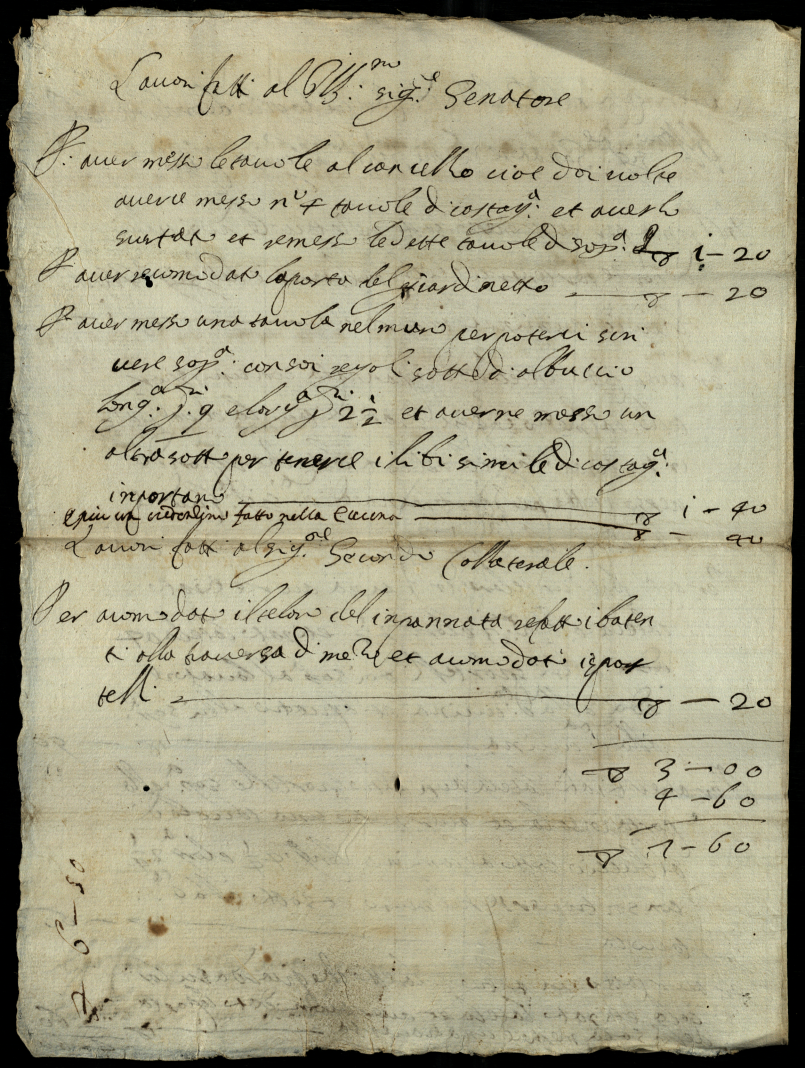 Lavori fatti al Ill.mo sig.re Senatore
P. aver messo le tavole al cancello cioe doi volte
averce messo n.o 4 tavole di castag.a et averle
et remesso le dette tavole di sop.a ▽ 1 – 20
P aver racomodato la porta del giardinetto ▽ – 20
P. aver messo una tavola nel muro per poterci scri
vere sop.a con soi regoli sotto di albuccio
long.a p.i 9 e larg.a p.i 2 1/2 et averne messo un
altra sotto per tenerce i libi simile di castag.a
importano ▽ 1 – 40
e piu un credenzino fatto nella cucina ▽ – 40
Lavori fatti al sig.ore Secondo Collaterale.
Per acomodato il telaro del inpannata refatto i baten
ti alla traversa di mezo et acomodati i spor
telli ▽ – 20
▽ 3 – 00
4 – 60
▽ 7 – 60
▽ 6 – 50